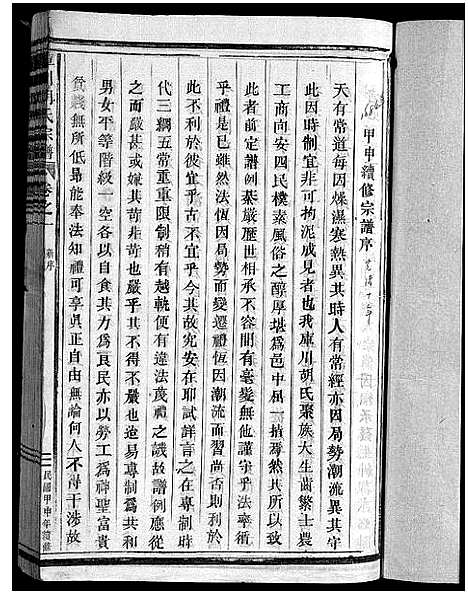 甲申續修宗譜序
天有常道每因燥濕寒熱異其時人有常經亦因局勢潮流異其守
此因時制宜非可拘泥成見者也我庫川胡氏聚族大生齒繁士農
工商向安四民樸素風俗之醇厚堪為邑中屈一指焉然其所以致
此者前定譜例綦嚴歷世相承不容間有毫髮無他謹守乎法率循
乎禮是已雖然法恆因局勢而變遷禮恆因潮流而習尚否則利於
此不利於彼宜乎古不宜乎今其故究安在耶試詳言之在專制時
代三綱五常重重限制稍有越軌便有違法蔑禮之譏故譜例應從
之而嚴甚或嫌其苛非苛也嚴乎其不得不嚴也造易專制為共和
男女平等階級一空各以自食其力方為良民亦以勞工為神聖富貴
貧賤無所低昂能奉法知禮可享真正自由無論何人不得干涉故
氏宗譜
卷之一
新序
民國甲申年續修